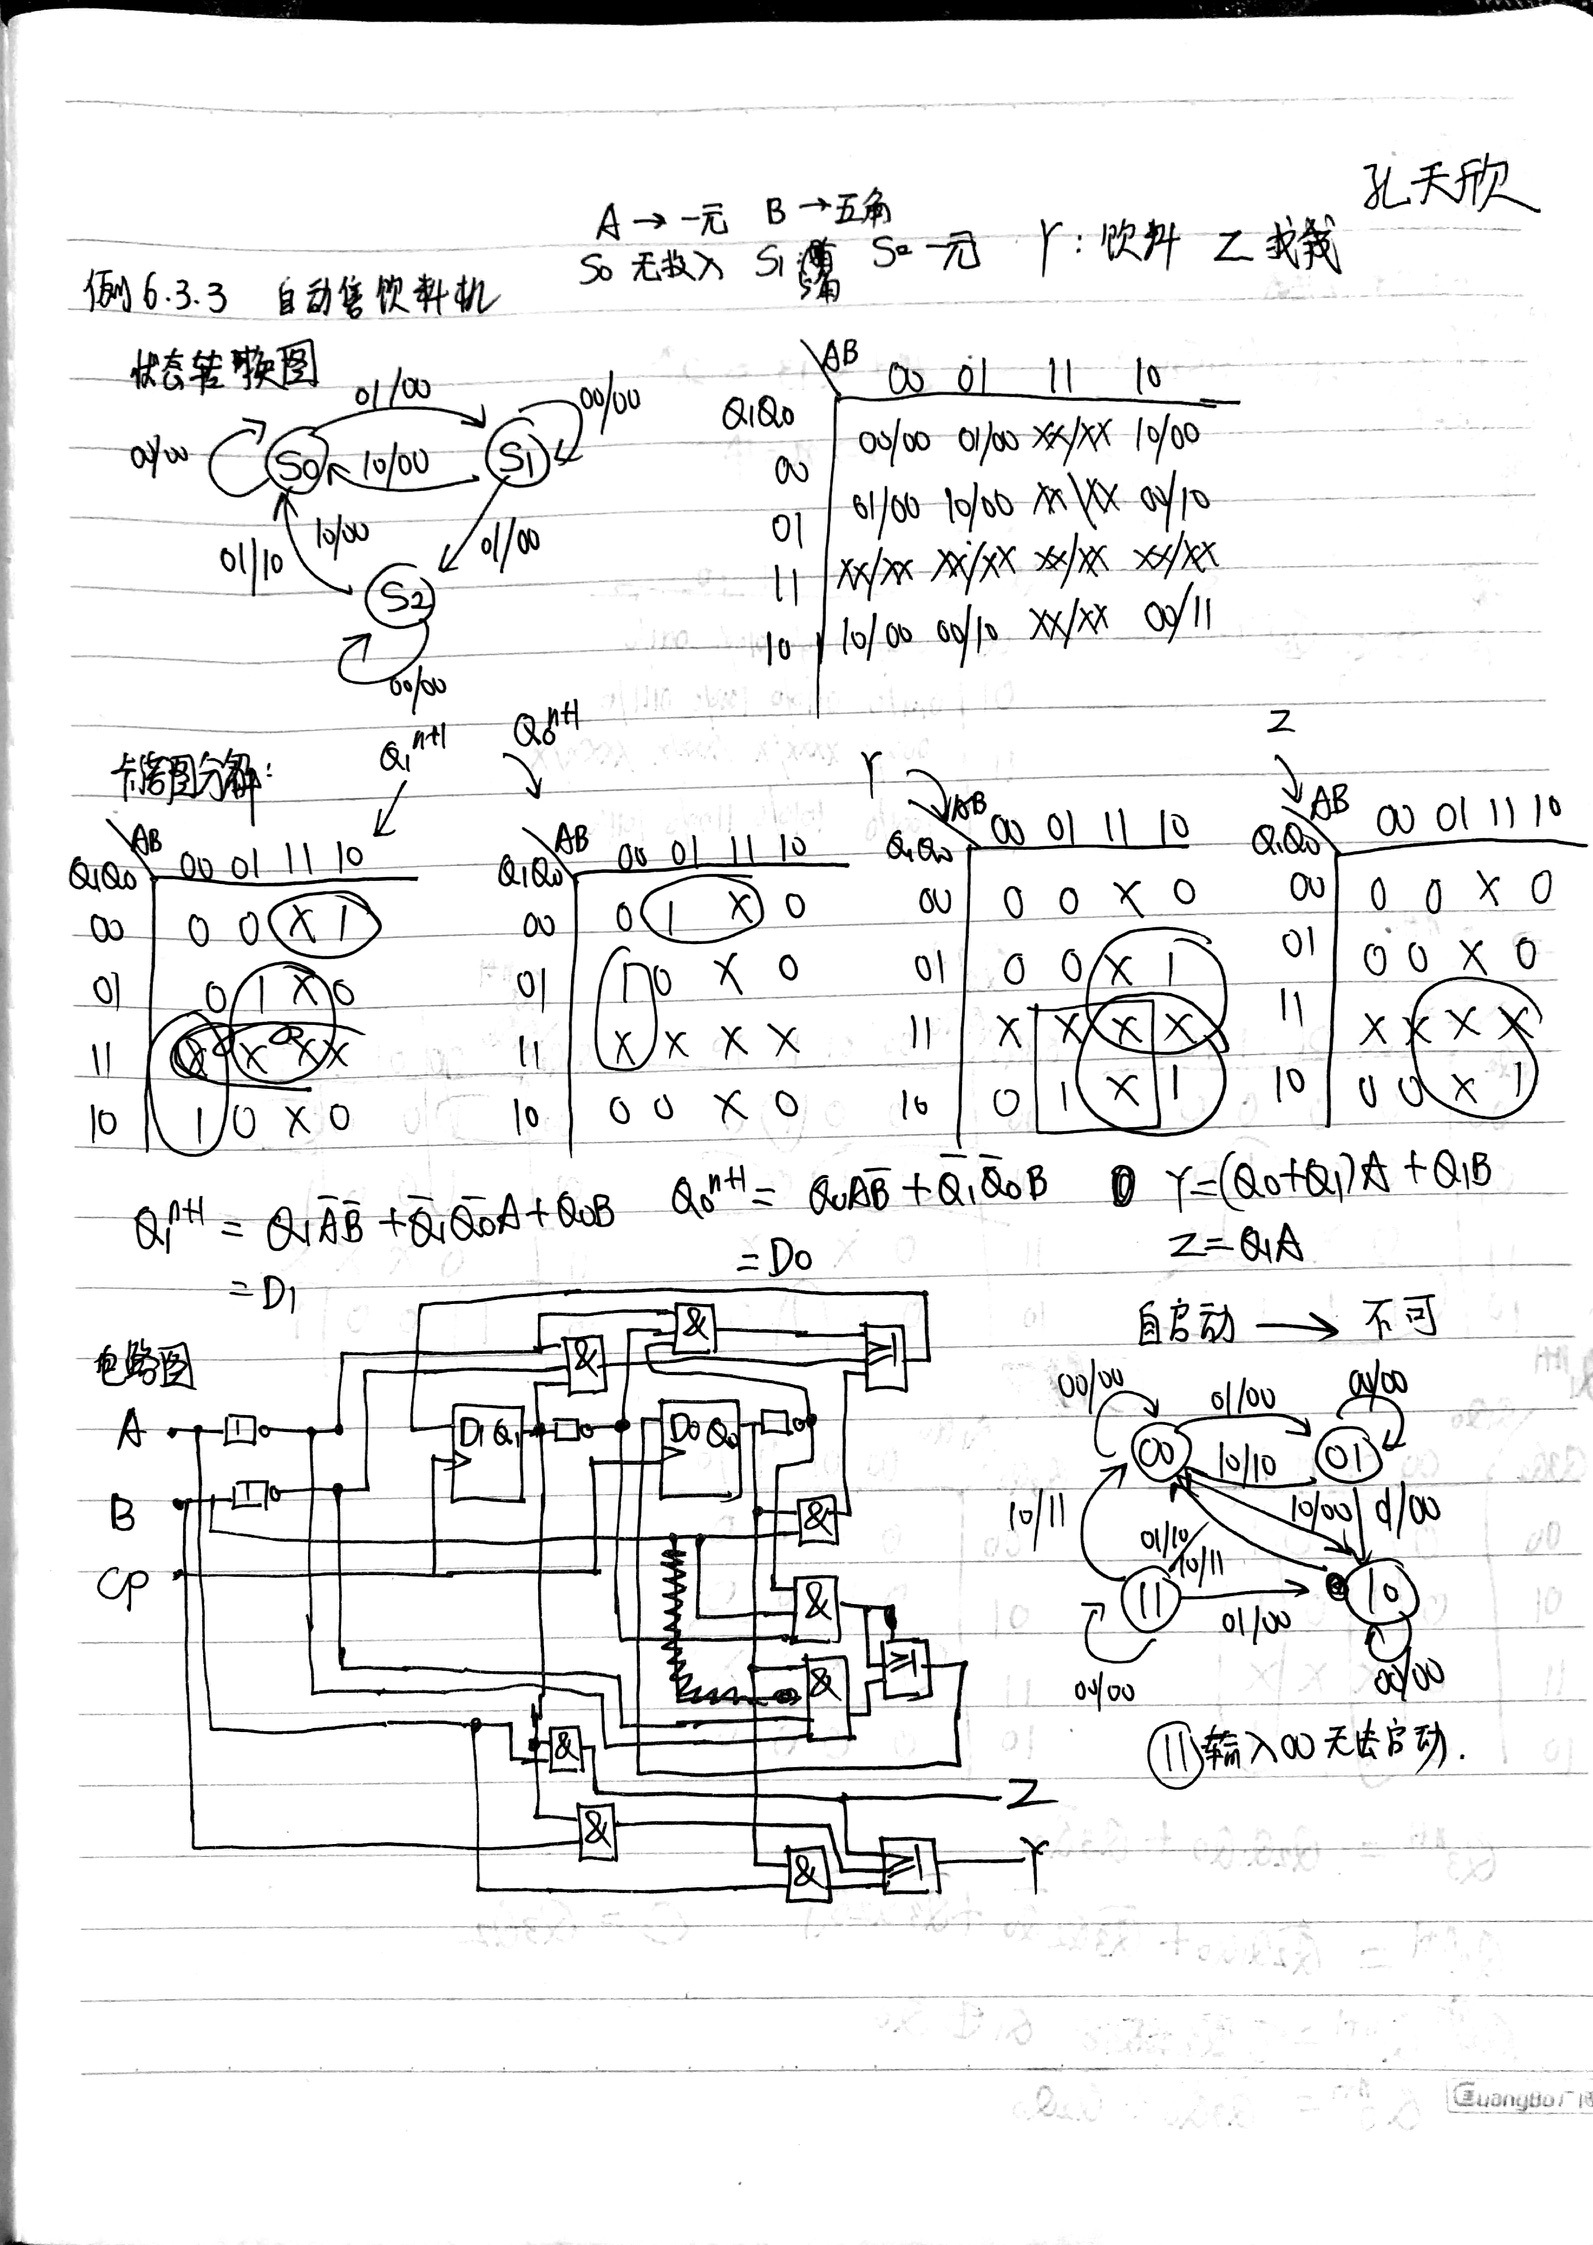 孔天欣
A → 一元 B → 五角
S0 无投入 S1 五角 S2 一元 Y：饮料 Z 找钱
例6.3.3 自动售饮料机
状态转换图
01/00 00/00
00/00 S0 10/00 S1
01/10 10/00 01/00
S2
00/00
AB 00 01 11 10
Q1Q0
00 00/00 01/00 XX/XX 10/00
01 01/00 10/00 XX\XX 00/10
11 XX/XX XX/XX XX/XX XX/XX
10 10/00 00/10 XX/XX 00/11
卡诺图分解：
Q1^n+1
AB
Q1Q0 00 01 11 10
00 0 0 X 1
01 0 1 X 0
11 X X X X
10 1 0 X 0
Q0^n+1
AB
Q1Q0 00 01 11 10
00 0 1 X 0
01 1 0 X 0
11 X X X X
10 0 0 X 0
Y
AB
Q1Q0 00 01 11 10
00 0 0 X 0
01 0 0 X 1
11 X X X X
10 0 1 X 1
Z
AB
Q1Q0 00 01 11 10
00 0 0 X 0
01 0 0 X 0
11 X X X X
10 0 0 X 1
Q1^n+1 = Q1A̅B̅ + Q̅1Q̅0A + Q0B
= D1
Q0^n+1 = Q0A̅B̅ + Q̅1Q̅0B
= D0
Y = (Q0+Q1)A + Q1B
Z = Q1A
电路图
& & ≥1
A 1 D1 Q1 D0 Q0
B 1 &
CP
& ≥1
&
& Z
& & ≥1 Y
自启动 → 不可
00/00 01/00 00/00
00 10/10 01
10/11 01/10 10/11 10/00 01/00
11 01/00 10
00/00 00/00
11 输入00无法启动.
GuangBo